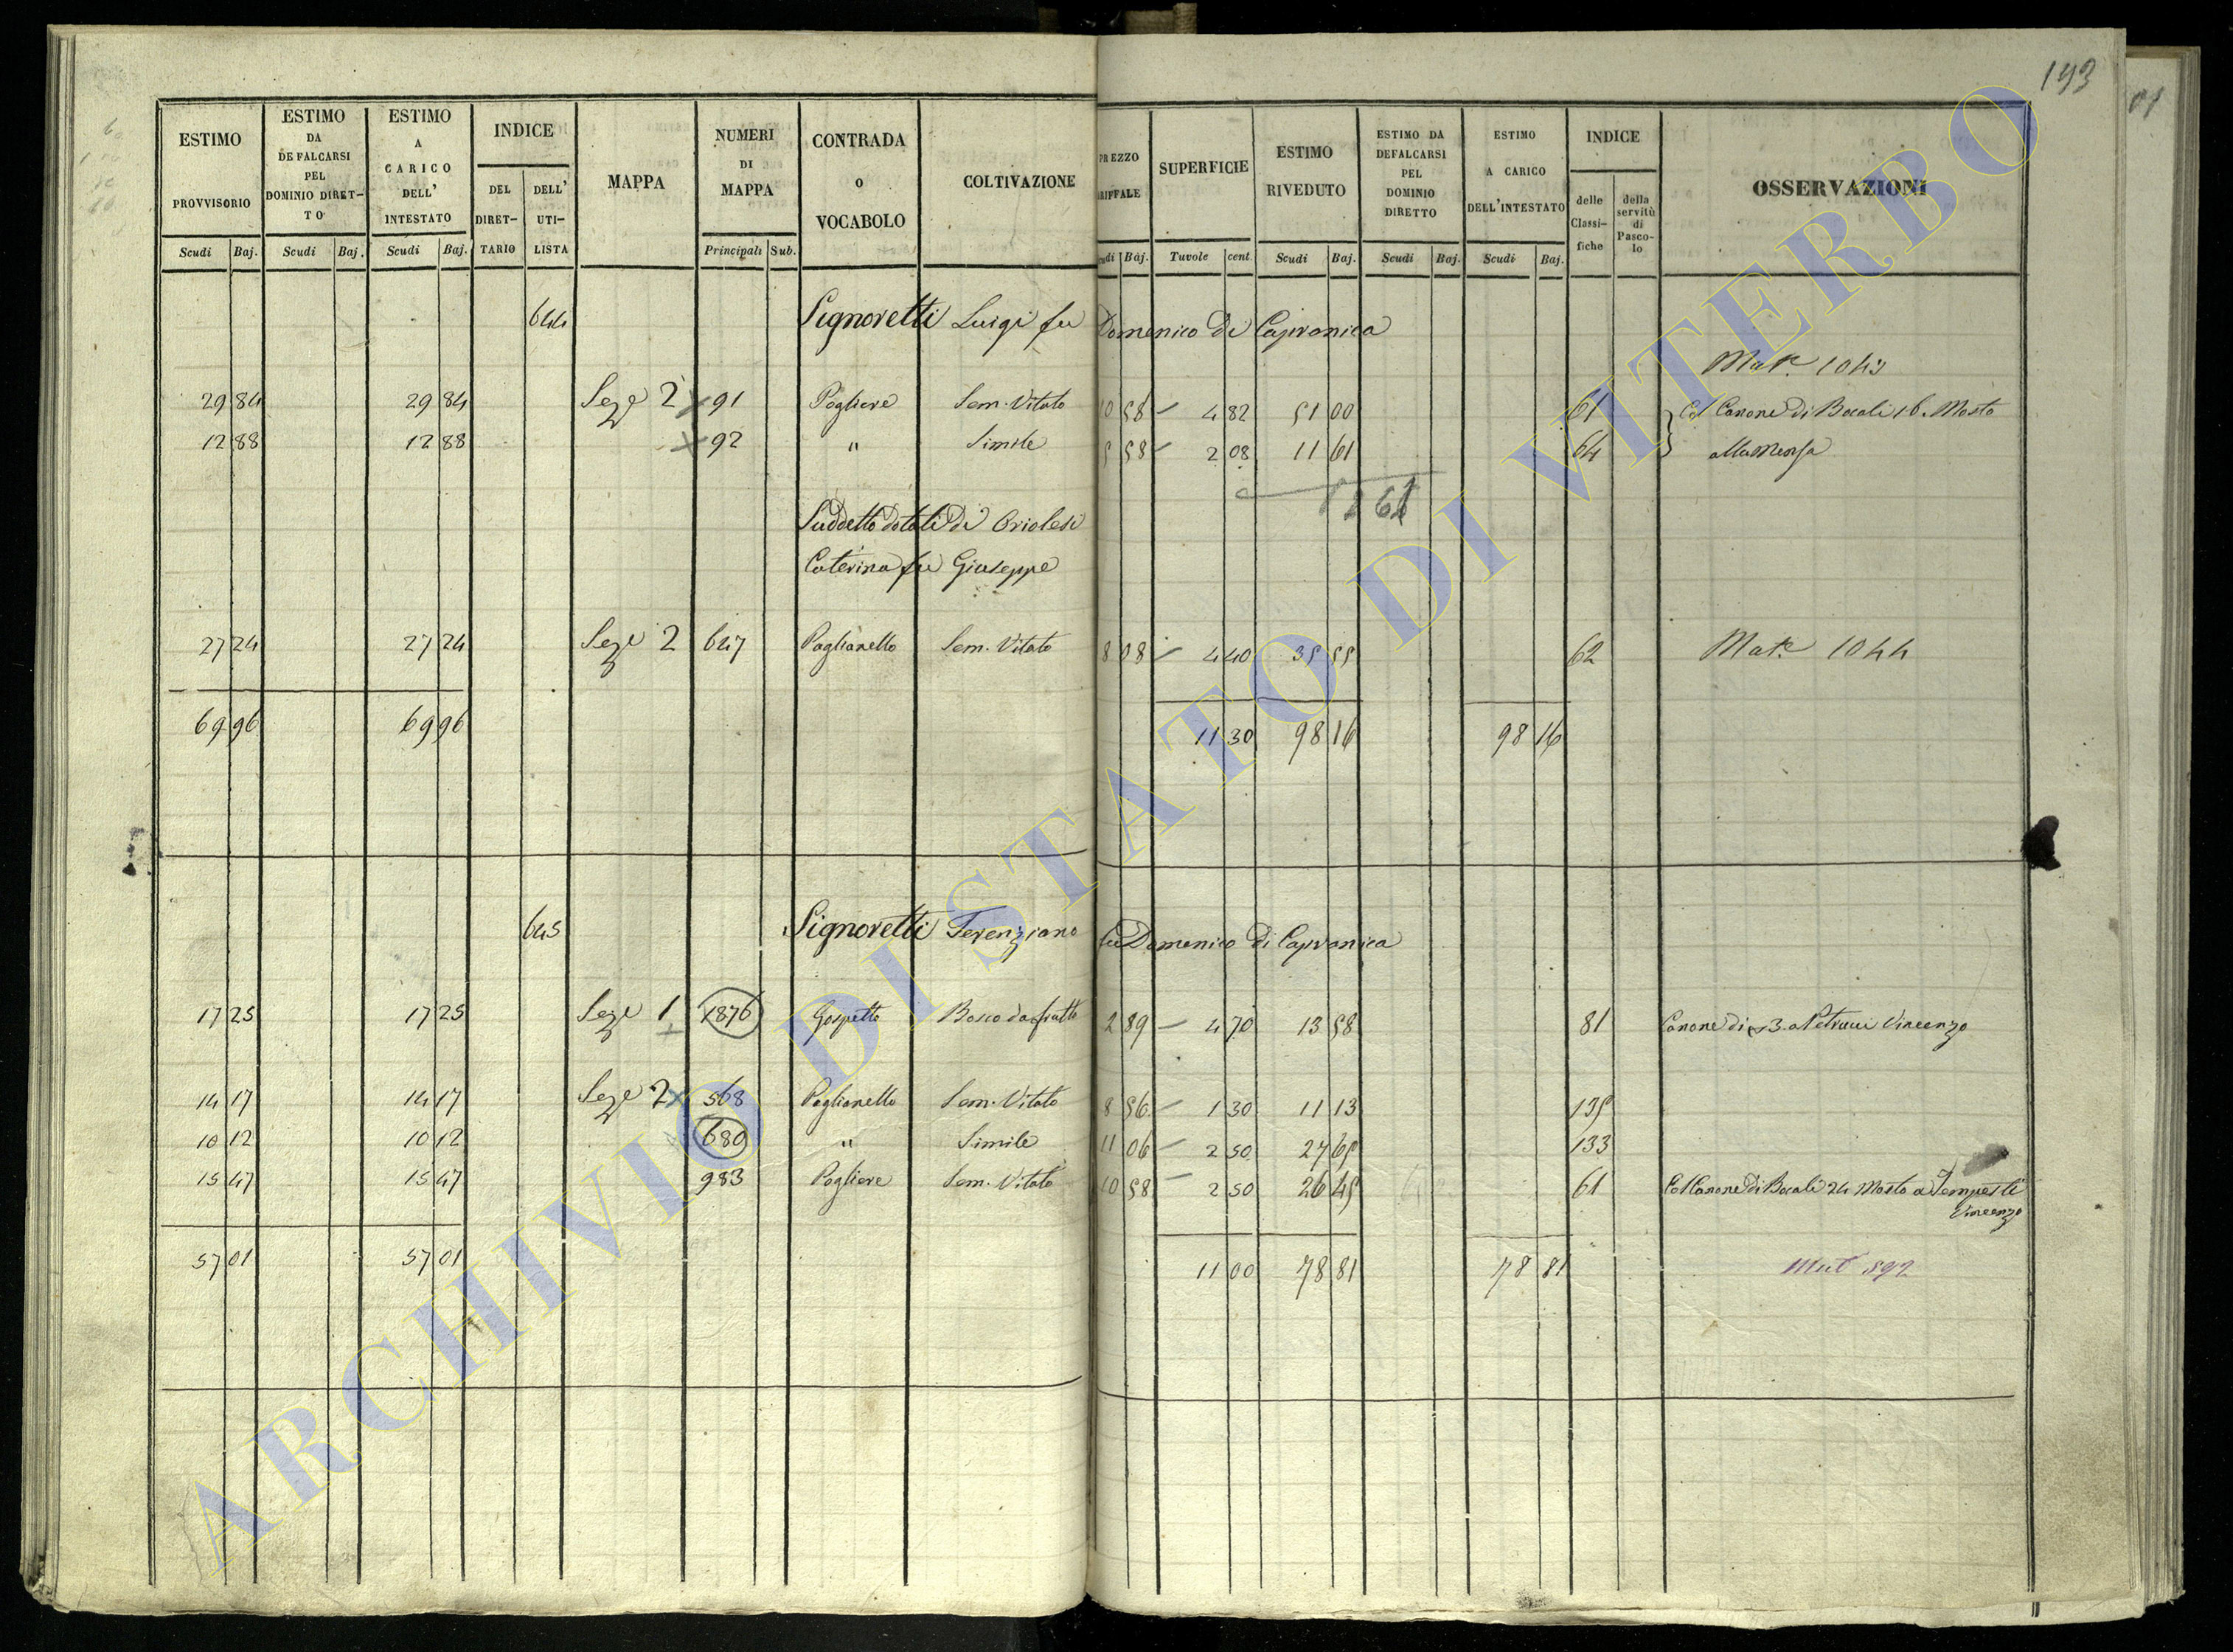 193
ESTIMO PROVVISORIO Scudi Baj.
ESTIMO DA DEFALCARSI PEL DOMINIO DIRET-TO Scudi Baj.
ESTIMO A CARICO DELL' INTESTATO Scudi Baj.
INDICE DEL DIRET-TARIO DELL' UTI-LISTA
MAPPA
NUMERI DI MAPPA Principali Sub.
CONTRADA O VOCABOLO
COLTIVAZIONE
PREZZO Baj.
SUPERFICIE Tuvole cent.
ESTIMO RIVEDUTO Scudi Baj.
ESTIMO DA DEFALCARSI PEL DOMINIO DIRETTO Scudi Baj.
ESTIMO A CARICO DELL'INTESTATO Scudi Baj.
INDICE delle Classi-fiche della servitù di Pasco-lo
OSSERVAZIONI
644 Signoretti Luigi fu Domenico Di Capranica
Mat.e 1043
29 84 29 84 Seze 2 91 Pogliere Sem. Vitato 10 58 4 82 51 00 61 Col Canone Di Bocali 16. Mosto
12 88 12 88 92 " Simile 5 58 2 08 11 61 64 alla Mensa
Suddetto dotali Di Oriolesi
Caterina fu Giuseppe
27 24 27 24 Seze 2 647 Poglianello Sem. Vitato 8 08 4 40 35 55 62 Mat.e 1044
69 96 69 96 11 30 98 16 98 16
645 Signoretti Terenziano fu Domenico Di Capranica
17 25 17 25 Seze 1 1876 Gospetto Bosco da frutto 2 89 4 70 13 58 81 Canone di 53. a Petrucci Vincenzo
14 17 14 17 Seze 2 568 Poglianello Sem. Vitato 8 56 1 30 11 13 135
10 12 10 12 680 " Simile 11 06 2 50 27 65 133
15 47 15 47 983 Pogliere Sem. Vitato 10 58 2 50 26 45 61 Col Canone Di Bocali 24 Mosto a Tempesti
Vincenzo
57 01 57 01 11 00 78 81 78 81 Mat 592
ARCHIVIO DI STATO DI VITERBO